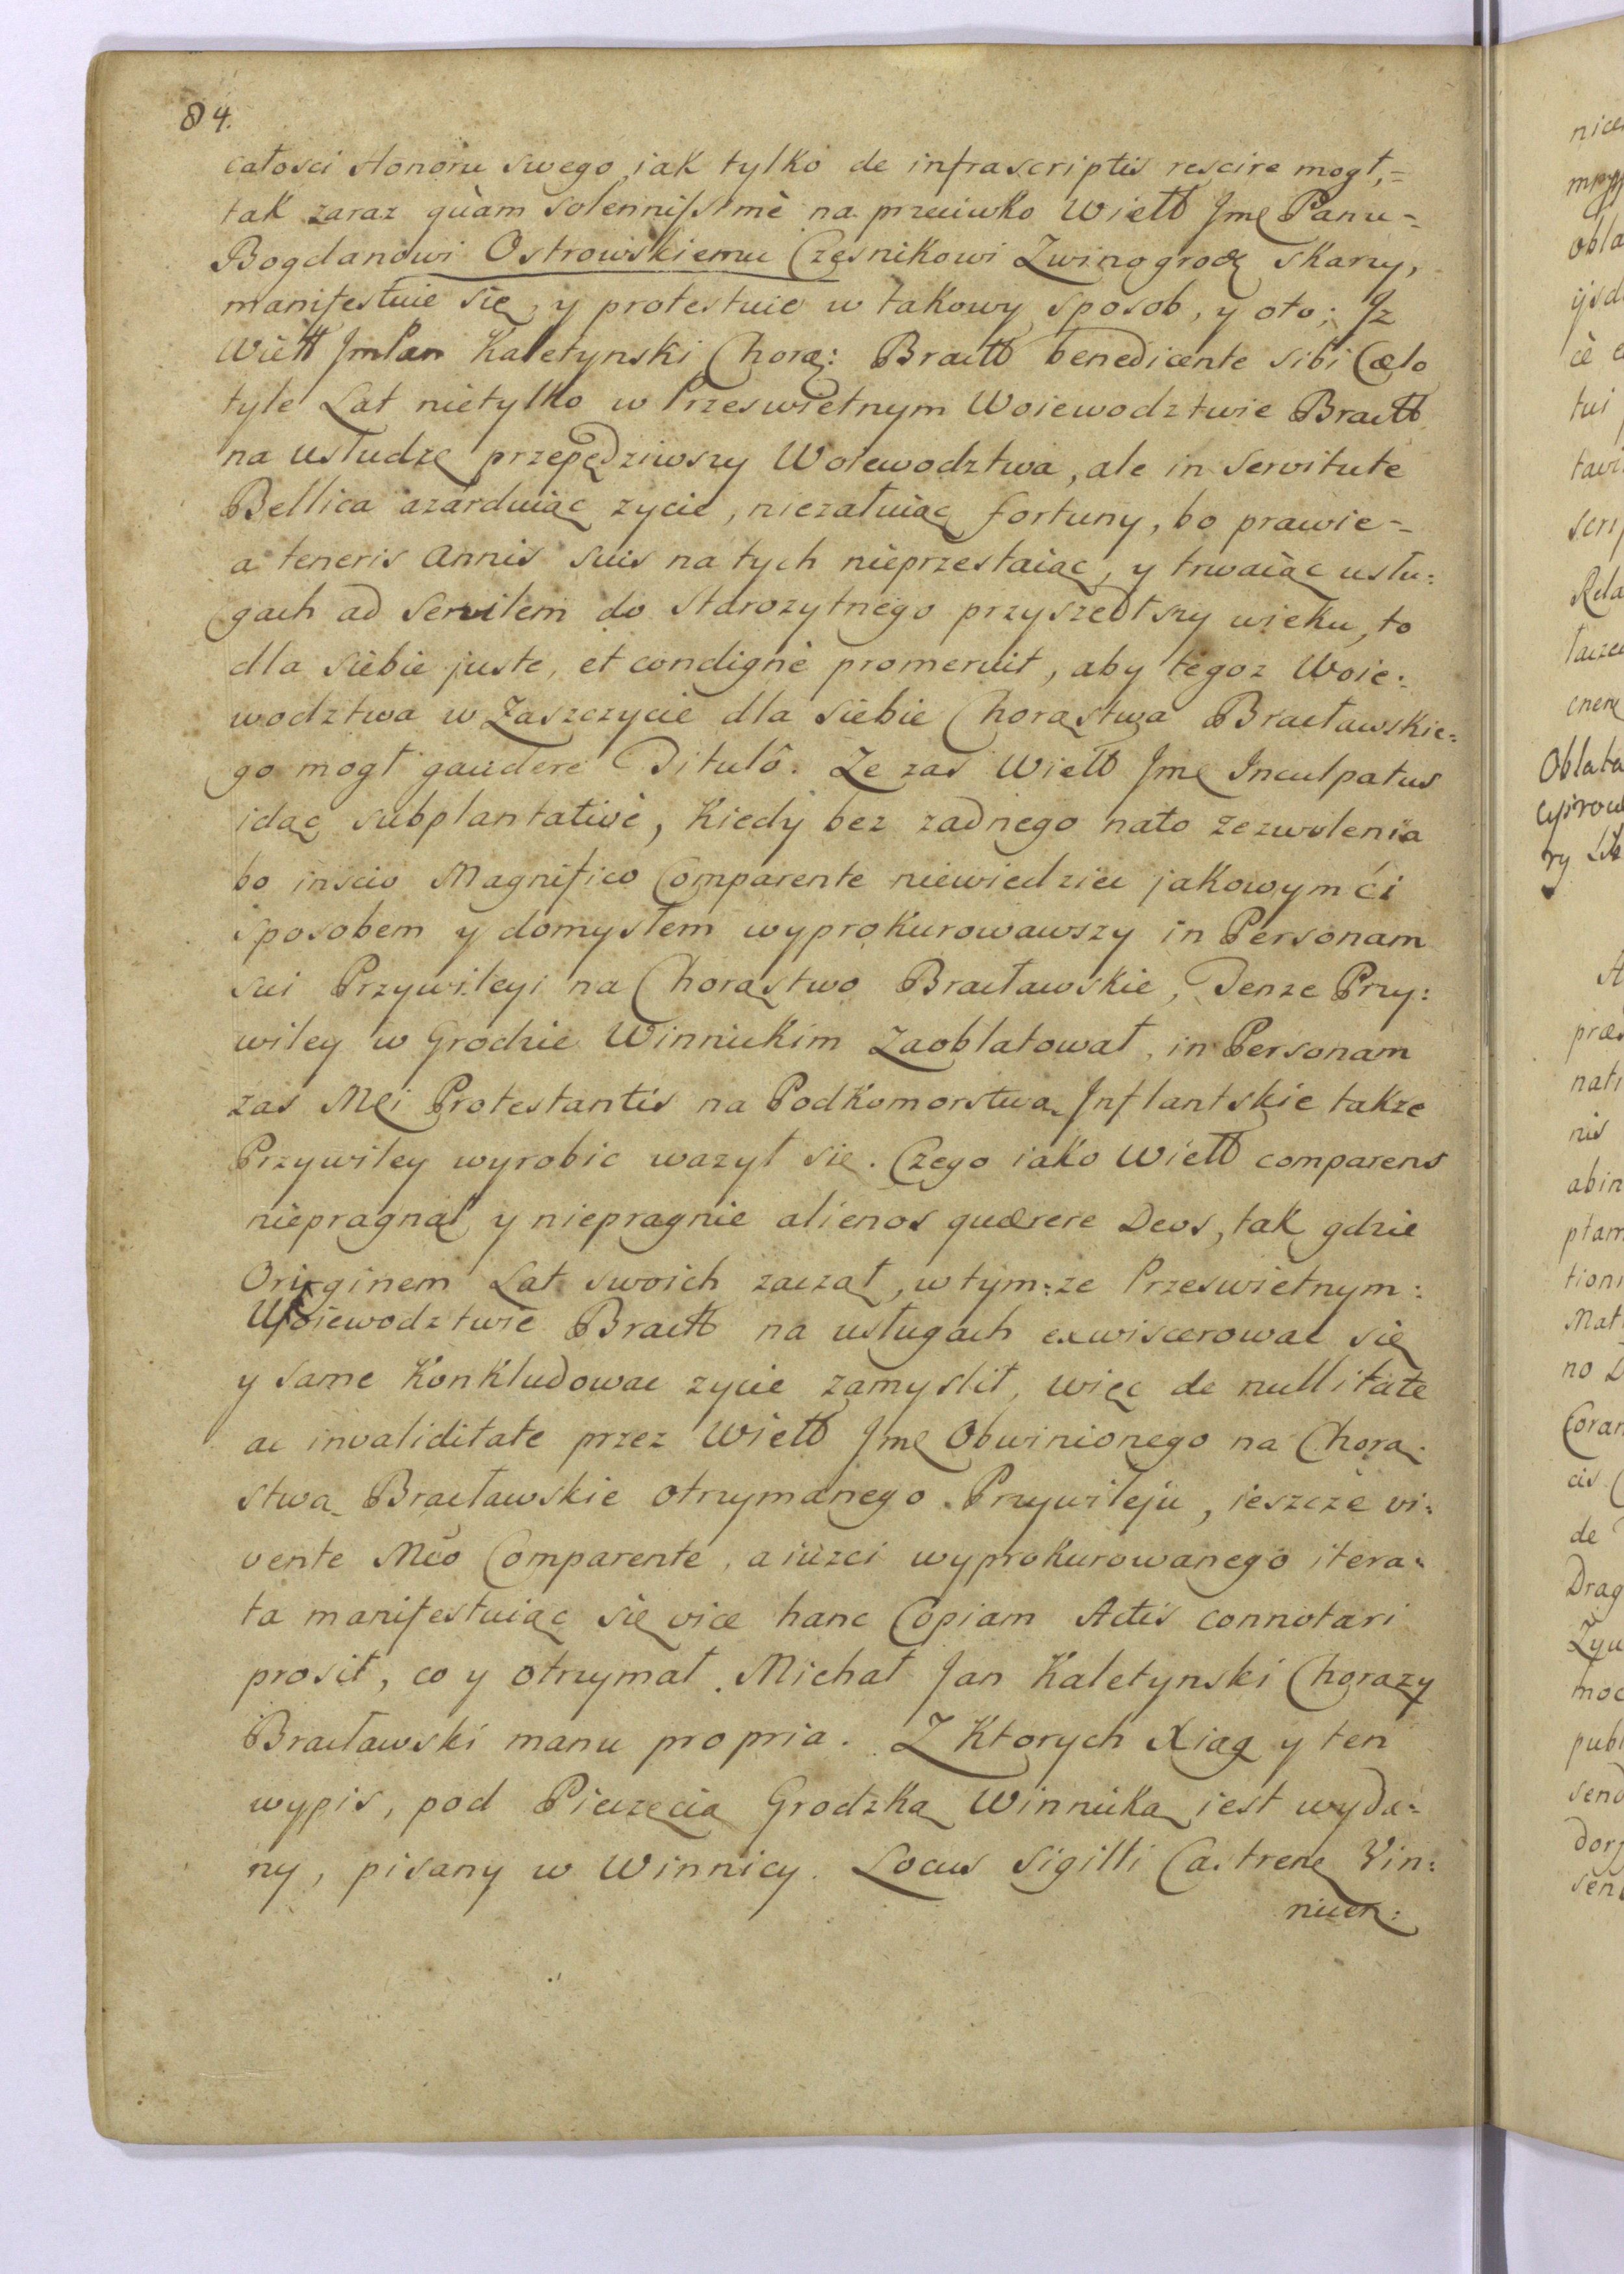 84.
całosci Honoru swego, iak tylko de infrascriptis rescire mogł,=
tak zaraz quàm solennissimè na przeciwko Wiellb Jmę Panu=
Bogdanowi Ostrowskiemu Częsnikowi Zwinogrodz skarzy,
manifestuie się, y protestuie w takowy sposob, y oto; Jz
Wiellt JmPan Kaletynski Chorą: Bracłł benedicente sibi Cælo
tyle Lat nietylko w Przeswietnym Woiewodztwie Bracłł
na usłudze przepędziwszy Woiewodztwa, ale in Servitute
Bellica azarduiąc zycie, niezałuiąc fortuny, bo prawie=
a teneris Annis suis na tych nieprzestaiąc, y trwaiąc usłu:
gach ad Senilem do starozytnego przyszedłszy wieku, to
dla siebie juste, et condignè promeruit, aby tegoz Woie:
wodztwa w Zaszczycie dla siebie Chorąstwa Bracławskie:
go mogł gaudere Titulô. Ze zas Wiellb Jmę Inculpatus
idąc subplantativè, kiedy bez zadnego nato zezwolenia
bo inscio Magnifico Comparente niewiedziec jakowymći
sposobem y domysłem wyprokurowawszy in Personam
sui Przywileyi na Chorąstwo Bracławskie, Tenze Przy:
wiley w Grodzie Winnickim Zaoblatował, in Personam
zas Mei Protestantis na Podkomorstwa Inflantskie takze
Przywiley wyrobic wazył się. Czego iako Wiellb comparens
niepragnął y niepragnie alienos quærere Deos, tak gdzie
Originem Lat swoich zaczął, w tym:ze Przeswietnym:
Woiewodztwie Bracłł na usługach exwiscerowac się
y same konkludowac zycie zamyslił, więc de nullitate
ac invaliditate przez Wiellb Jmę Obwinionego na Chorą
stwa Bracławskie otrzymanego Przywileju, ieszcze vi:
vente Mčo Comparente, a iuzci wyprokurowanego itera:
ta manifestuiąc się vice hanc Copiam Actis connotari
prosił, co y otrzymał. Michał Jan Kaletynski Chorązy
Bracławski manu propria. Z Ktorych Xiąg y ten
wypis, pod Pieczęcią Grodzką Winnicką iest wyda=
ny, pisany w Winnicy. Locus Sigilli Castrenę Vin:
nicen:
Oblata